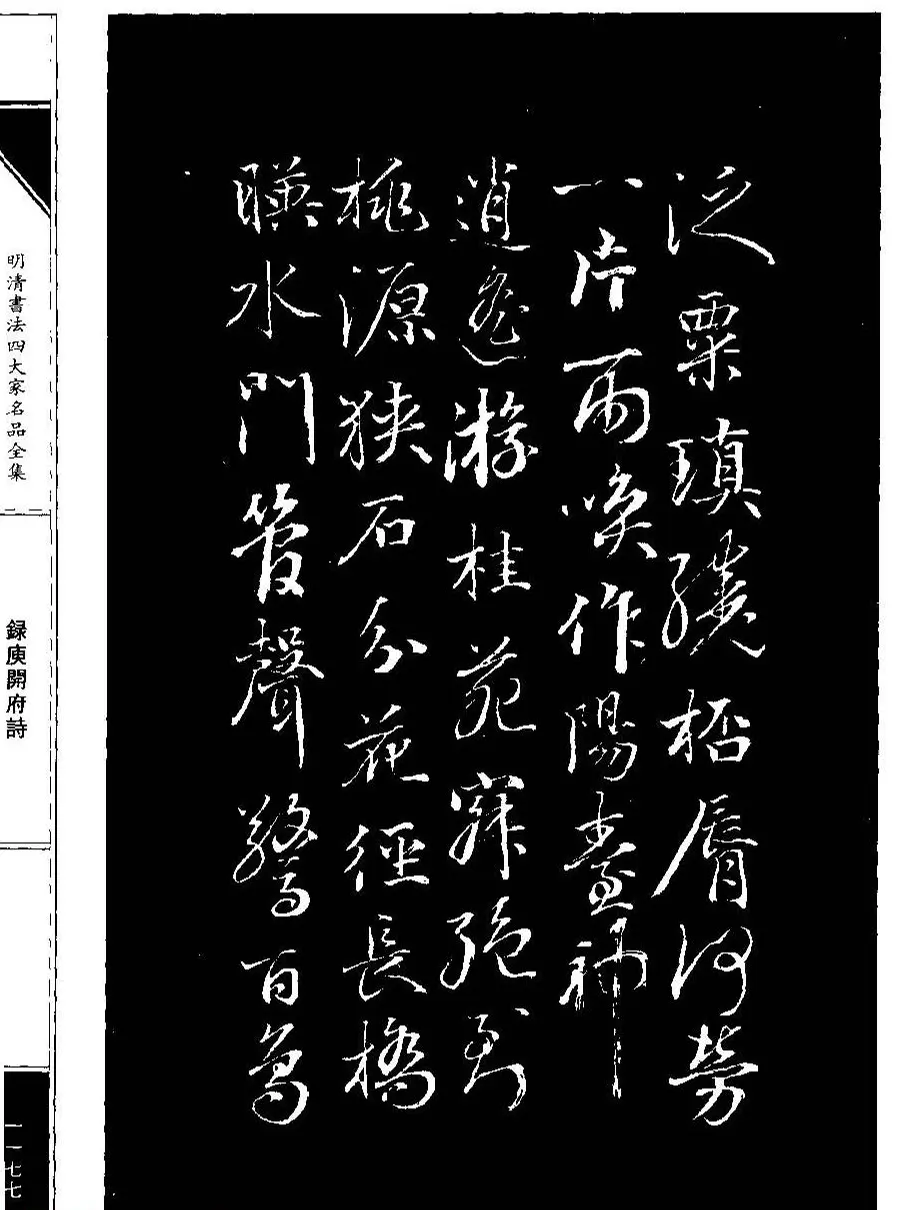 泛粟瑱繞桮脣何勞
一片雨喚作陽臺神
逍遙游桂苑寂絕到
桃源狹石分花徑長橋
暎水門管聲驚百鳥
明清書法四大家名品全集
録庾開府詩
一一七七